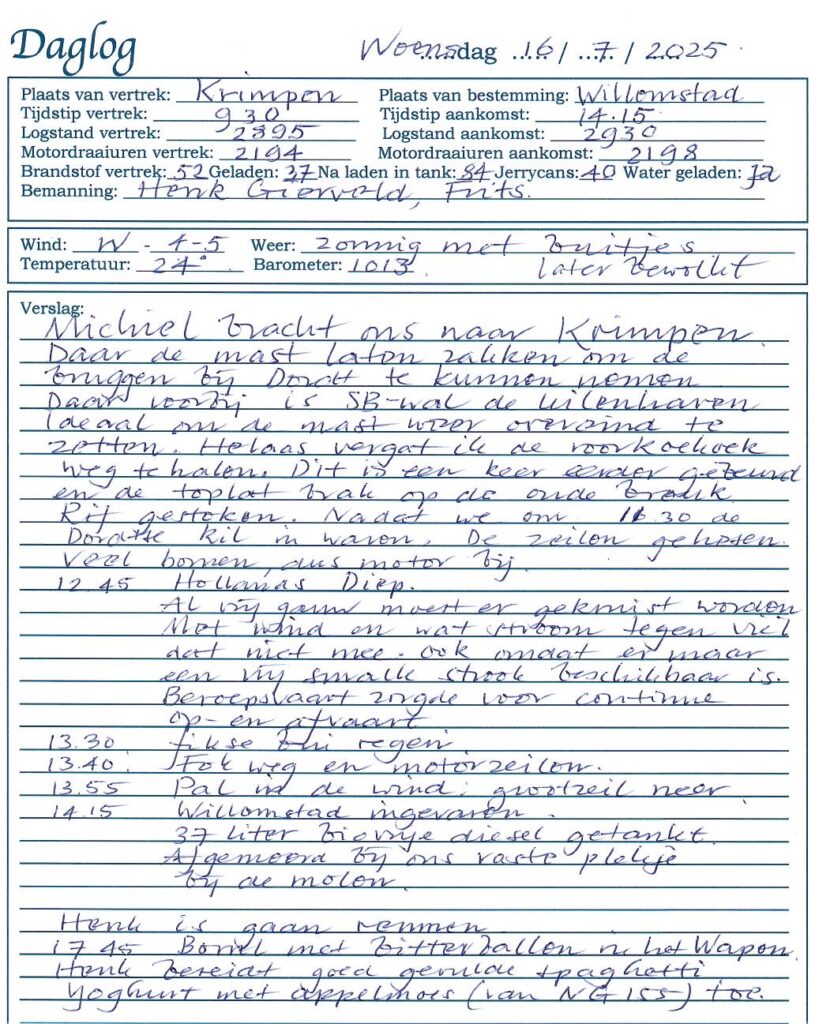 Daglog
Woensdag 16 / 7 / 2025
Plaats van vertrek: Krimpen Plaats van bestemming: Willemstad
Tijdstip vertrek: 930 Tijdstip aankomst: 14.15
Logstand vertrek: 2895 Logstand aankomst: 2930
Motordraaiuren vertrek: 2194 Motordraaiuren aankomst: 2198
Brandstof vertrek: 52 Geladen: 37 Na laden in tank: 84 Jerrycans: 40 Water geladen: ja
Bemanning: Henk Gierveld, Frits.
Wind: W - 4-5 Weer: zonnig met buitjes
Temperatuur: 24° Barometer: 1013 later bewolkt
Verslag:
Michiel bracht ons naar Krimpen.
Daar de mast laten zakken om de
bruggen bij Dordt te kunnen nemen
Daar voorbij is SB-wal de uilenhaven
Ideaal om de mast weer overeind te
zetten. Helaas vergat ik de voorkoekoek
weg te halen. Dit is een keer eerder gebeurd
en de toplat brak op de oude breuk
Rif gestoken. Nadat we om 11.30 de
Dordtse kil in waren. De zeilen gehesen.
Veel bomen, dus motor bij.
12.45 Hollands Diep.
Al vrij gauw moest er gekruist worden
Met wind en wat stroom tegen viel
dat niet mee. ook omdat er maar
een vrij smalle strook beschikbaar is.
Beroepsvaart zorgde voor continue
op- en afvaart
13.30 fikse bui regen
13.40 Fok weg en motorzeilen.
13.55 Pal in de wind: grootzeil neer
14.15 Willemstad ingevaren.
37 liter biovrije diesel getankt.
Afgemeerd bij ons vaste plekje
bij de molen.
Henk is gaan rennen
17.45 Borrel met bitterballen in het Wapen.
Henk bereidt goed gevulde spaghetti
Yoghurt met appelmoes (van NG155) toe.